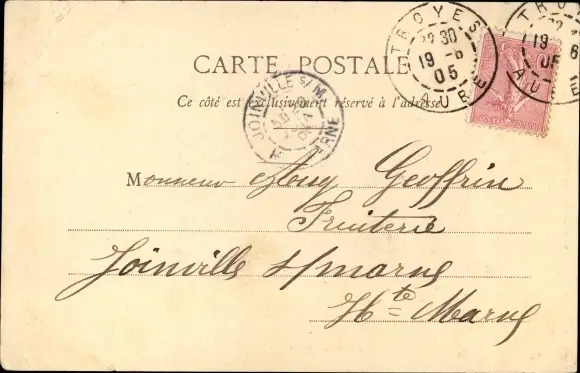 TROYES
22 30
19 -6
05
AUBE
TROYES
19 6
05
AUBE
CARTE POSTALE
Ce côté est exclusivement réservé à l'adresse
JOINVILLE S/M.
Hte MARNE
Monsieur Geoffrin
Fruiterie
Joinville s/marne
Hte Marne